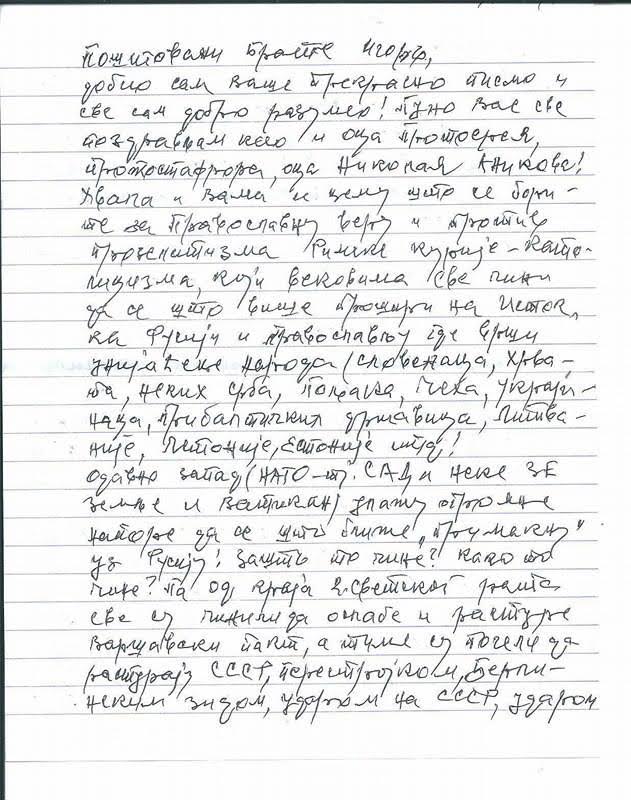 Поштовани брате Игоре,
добио сам Ваше прекрасно писмо и
све сам добро разумео! Пуно Вас све
поздрављам као и оца Протојереја,
протоставрора, оца Николая
Хвала и Вама и њему што се бори-
те за Православну веру и против
прозелитизма Римске курије - Като-
лицизма, који вековима све чини
да се што више прошири на Исток,
ка Русији и православљу где врши
унијаћење народа (словенаца, Хрва-
та, неких срба, Пољака, Чеха, Украји-
наца, прибалтичких државица, Литва-
није, Летоније, Естоније итд!
Одавно запад (НАТО-т). САД и неке ЗЕ
земље и Ватикан) улажу огромне
напоре да се што ближе „примакну"
уз Русију! Зашто то чине? Како то
чине? Па од краја 2. светског рата
све су чинили да ослабе и растуре
Варшавски пакт, а тиме су почели да
растурају СССР, перестројком, Берли-
нским зидом, ударом на СССР, ударом